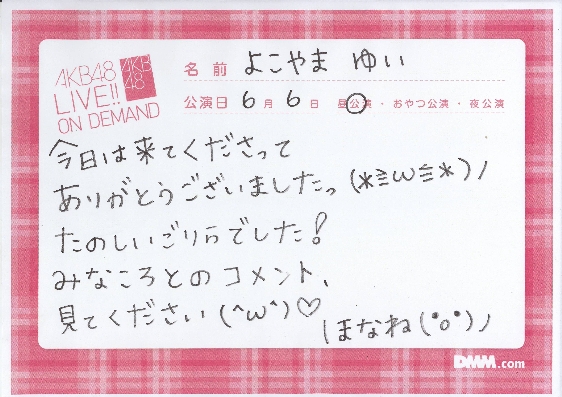 AKB48
LIVE!!
ON DEMAND
AKB
48
名前 よこやま ゆい
公演日 6月6日 昼公演・おやつ公演・夜公演
今日は来てくださって
ありがとうございましたっ(*≧ω≦*)ノ
たのしいごりらでした!
みなころとのコメント、
見てください(^ω^)♡
ほなね(°o°)ノ
DMM.com